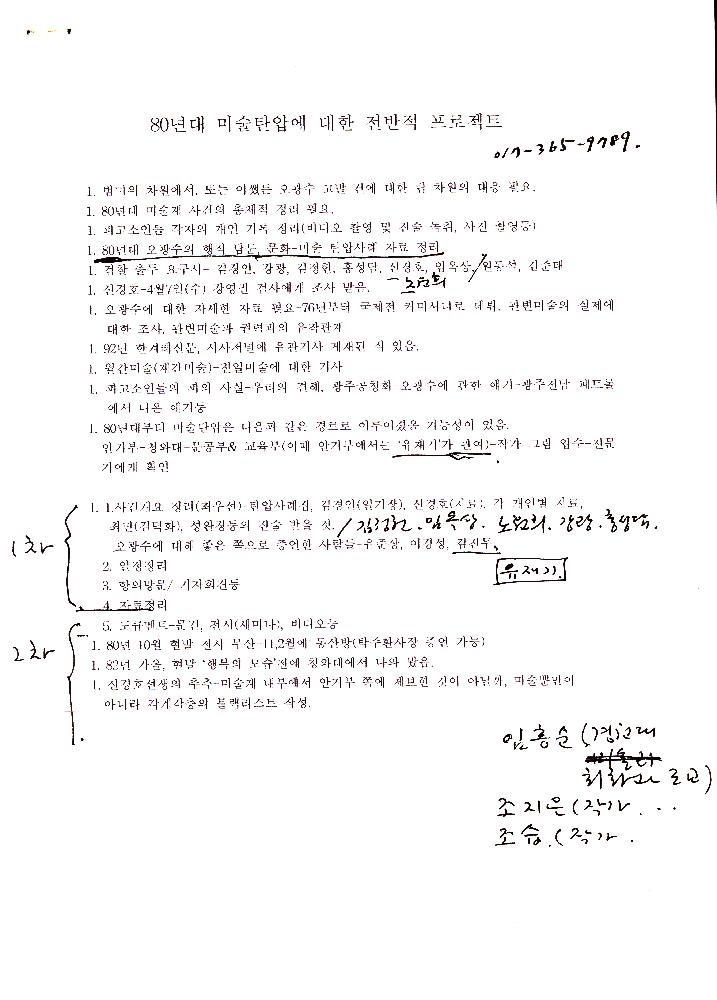 80년대 미술탄압에 대한 전반적 프로젝트
017-365-9789.
1. 범미의 차원에서, 또는 어쨌든 오광수 고발 건에 대한 팀 차원의 대응 필요.
1. 80년대 미술계 사건의 총체적 정리 필요.
1. 피고소인들 각자의 개인 기록 정리(비디오 촬영 및 진술 녹취, 사진 촬영등)
1. 80년대 오광수의 행적 담론, 문화-미술 탄압사례 자료 정리
1. 검찰 출두 요구서- 김정인, 강광, 김정헌, 홍성담, 신경호, 임옥상, 원동석, 김준태
노원희
1. 신경호-4월7일(수) 강영권 검사에게 조사 받음.
1. 오광수에 대한 자세한 자료 필요-76년부터 국제전 커미셔너로 데뷔. 관변미술의 실제에
대한 조사, 관변미술과 권력과의 유착관계
1. 92년 한겨레신문, 시사저널에 유관기사 게재된 적 있음.
1. 월간미술(계간미술)-친일미술에 대한 기사
1. 피고소인들의 피의 사실-우리의 견해, 광주공청회 오광수에 관한 얘기-광주전남
에서 나온 얘기등
1. 80년대부터 미술탄압은 다음과 같은 경로로 이루어졌을 가능성이 있음.
안기부-청와대-문공부& 교육부(이때 안기부에서는 '유재기'가 관여)-작가 그림 입수-전문
가에게 확인
1차
1. 1.사건개요 정리(최우선)-탄압사례집, 김정인(일기장), 신경호(자료). 각 개인별 자료,
최민(김덕화), 성완경등의 진술 받을 것. / 김정헌. 임옥상. 노원희. 강광. 홍성담.
오광수에 대해 좋은 쪽으로 증언한 사람들-유준상, 이경성, 김진두,
유재기.
2. 일정정리
3. 항의방문/ 기자회견등
4. 자료정리
2차
5. 도큐멘트-문건, 전시(세미나), 비디오등
1. 80년 10월 현발 전시 무산-11,2월에 동산방(박주환사장 증언 가능)
1. 82년 가을, 현발 '행복의 모습'전에 청와대에서 나와 봤음.
1. 신경호선생의 추측-미술계 내부에서 안기부 쪽에 제보한 것이 아닌가, 미술뿐만이
아니라 각계각층의 블랙리스트 작성.
임흥순 (경원대
회화과 로고)
조지은 (작가 . . .
조습. (작가 .